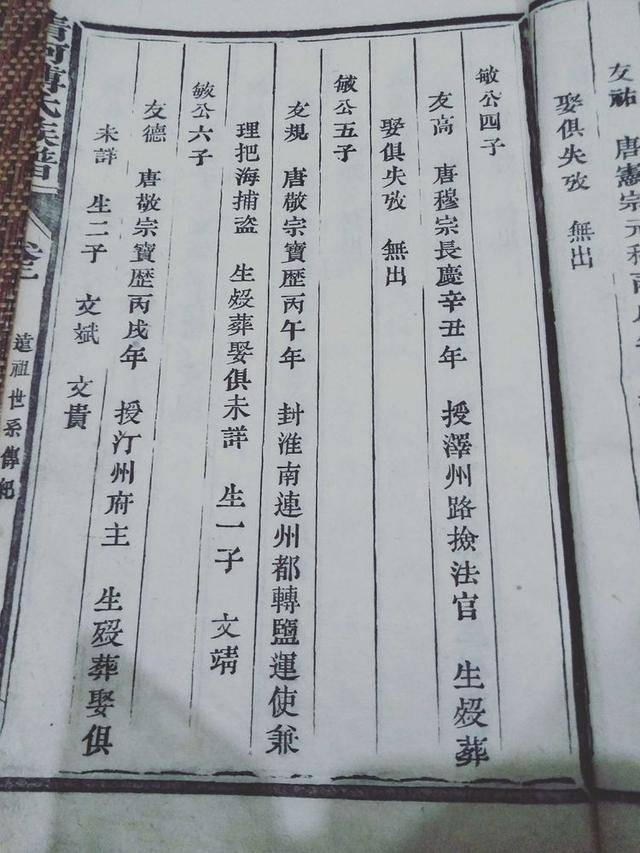 友祐　唐憲宗元和丙戌年
娶俱失攷　無出
敏公四子
友高　唐穆宗長慶辛丑年　授澤州路撿法官　生歿葬
娶俱失攷　無出
敏公五子
友規　唐敬宗寶歷丙午年　封淮南連州都轉鹽運使兼
理把海捕盜　生歿葬娶俱未詳　生一子　文靖
敏公六子
友德　唐敬宗寶歷丙戌年　授汀州府主　生歿葬娶俱
未詳　生二子　文斌　文貴
清河傅氏族譜　卷二　遠祖世系傳紀